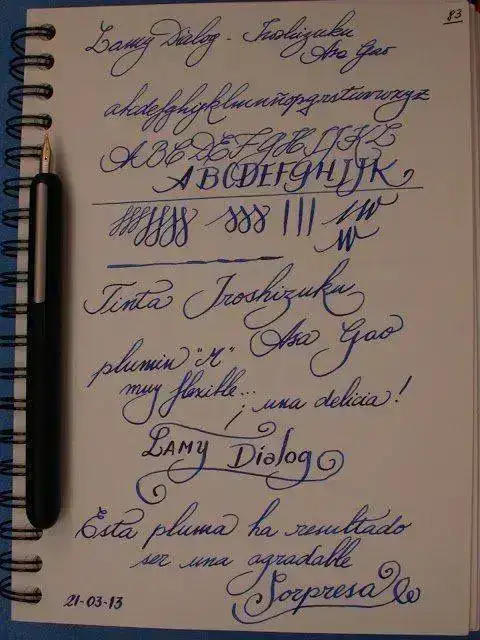 83
Lamy Dialog - Iroshizuku
Asa Gao
abcdefghijklmnñopqrstuvwxyz
ABCDEFGHIJKL
ABCDEFGHIJK
Tinta Iroshizuku
Asa Gao
plumin "M"
muy flexible...
¡una delicia!
Lamy Dialog
Esta pluma ha resultado
ser una agradable
Sorpresa
21-03-13